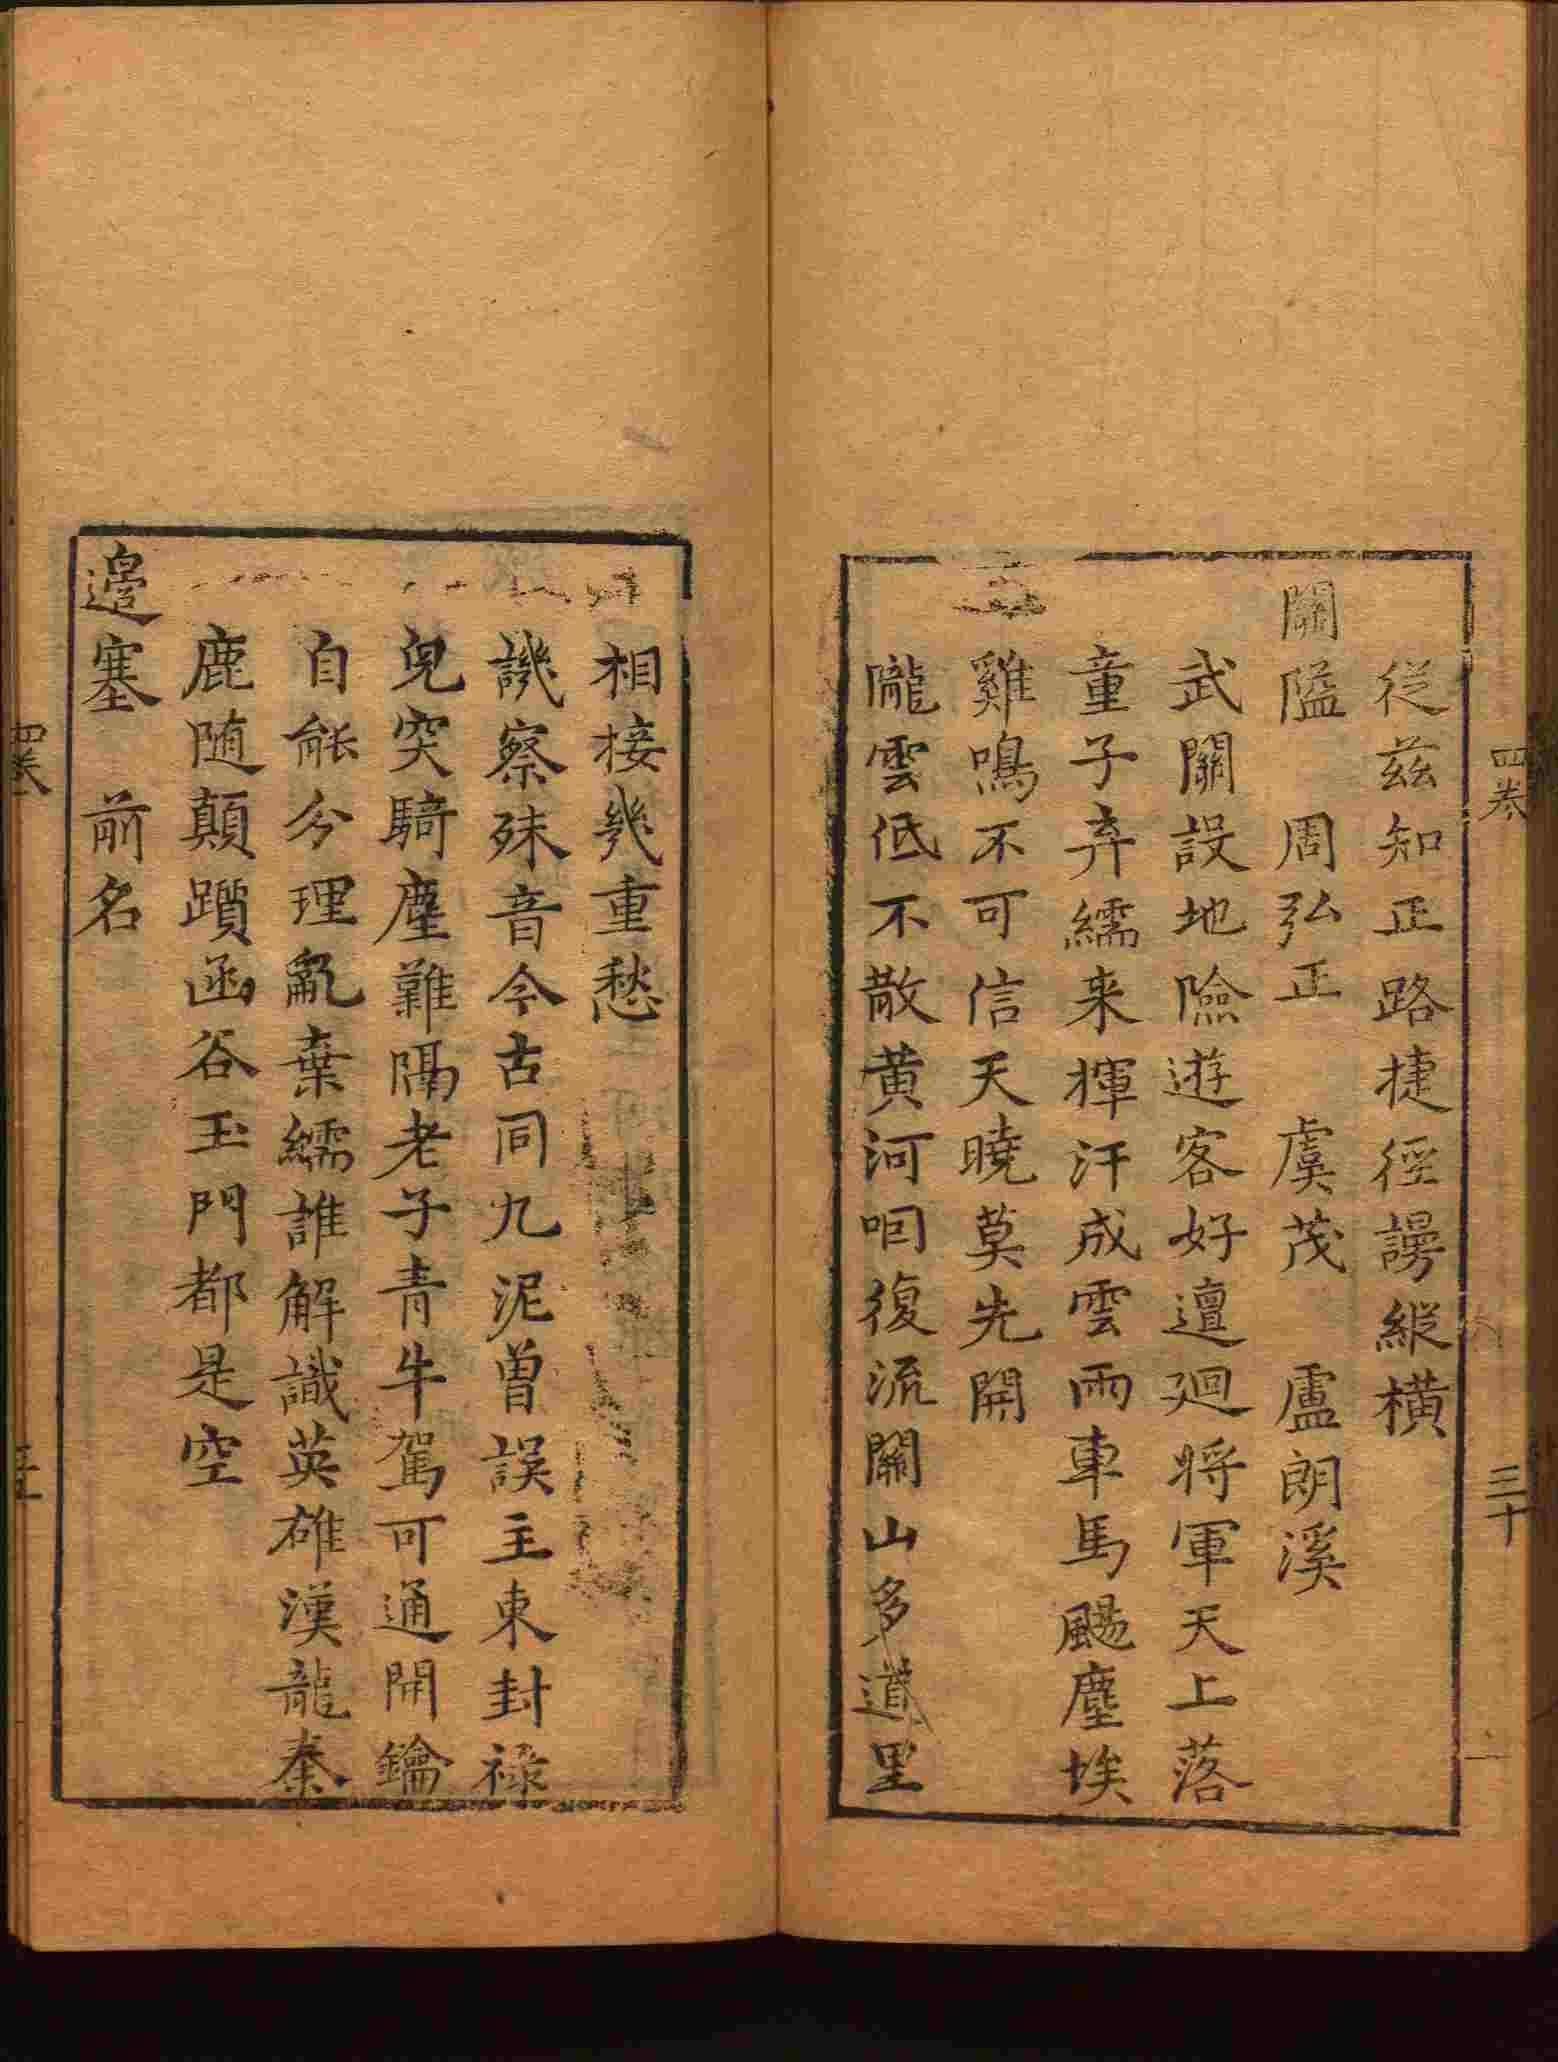 從茲知正路捷徑謾縱橫
關隘　周弘正　虞茂　盧朗溪
武關設地險遊客好邅迴將軍天上落
童子弃繻来揮汗成雲雨車馬颺塵埃
雞鳴不可信天曉莫先開
隴雲低不散黄河咽復流關山多道里
四卷　三十
相接幾重愁
譏察殊音今古同九泥曽誤主東封祿
兒突騎塵難隔老子青牛駕可通開鑰
自能分理亂棄繻誰解識英雄漢龍秦
鹿随顛躓函谷玉門都是空
邊塞　前名
四卷